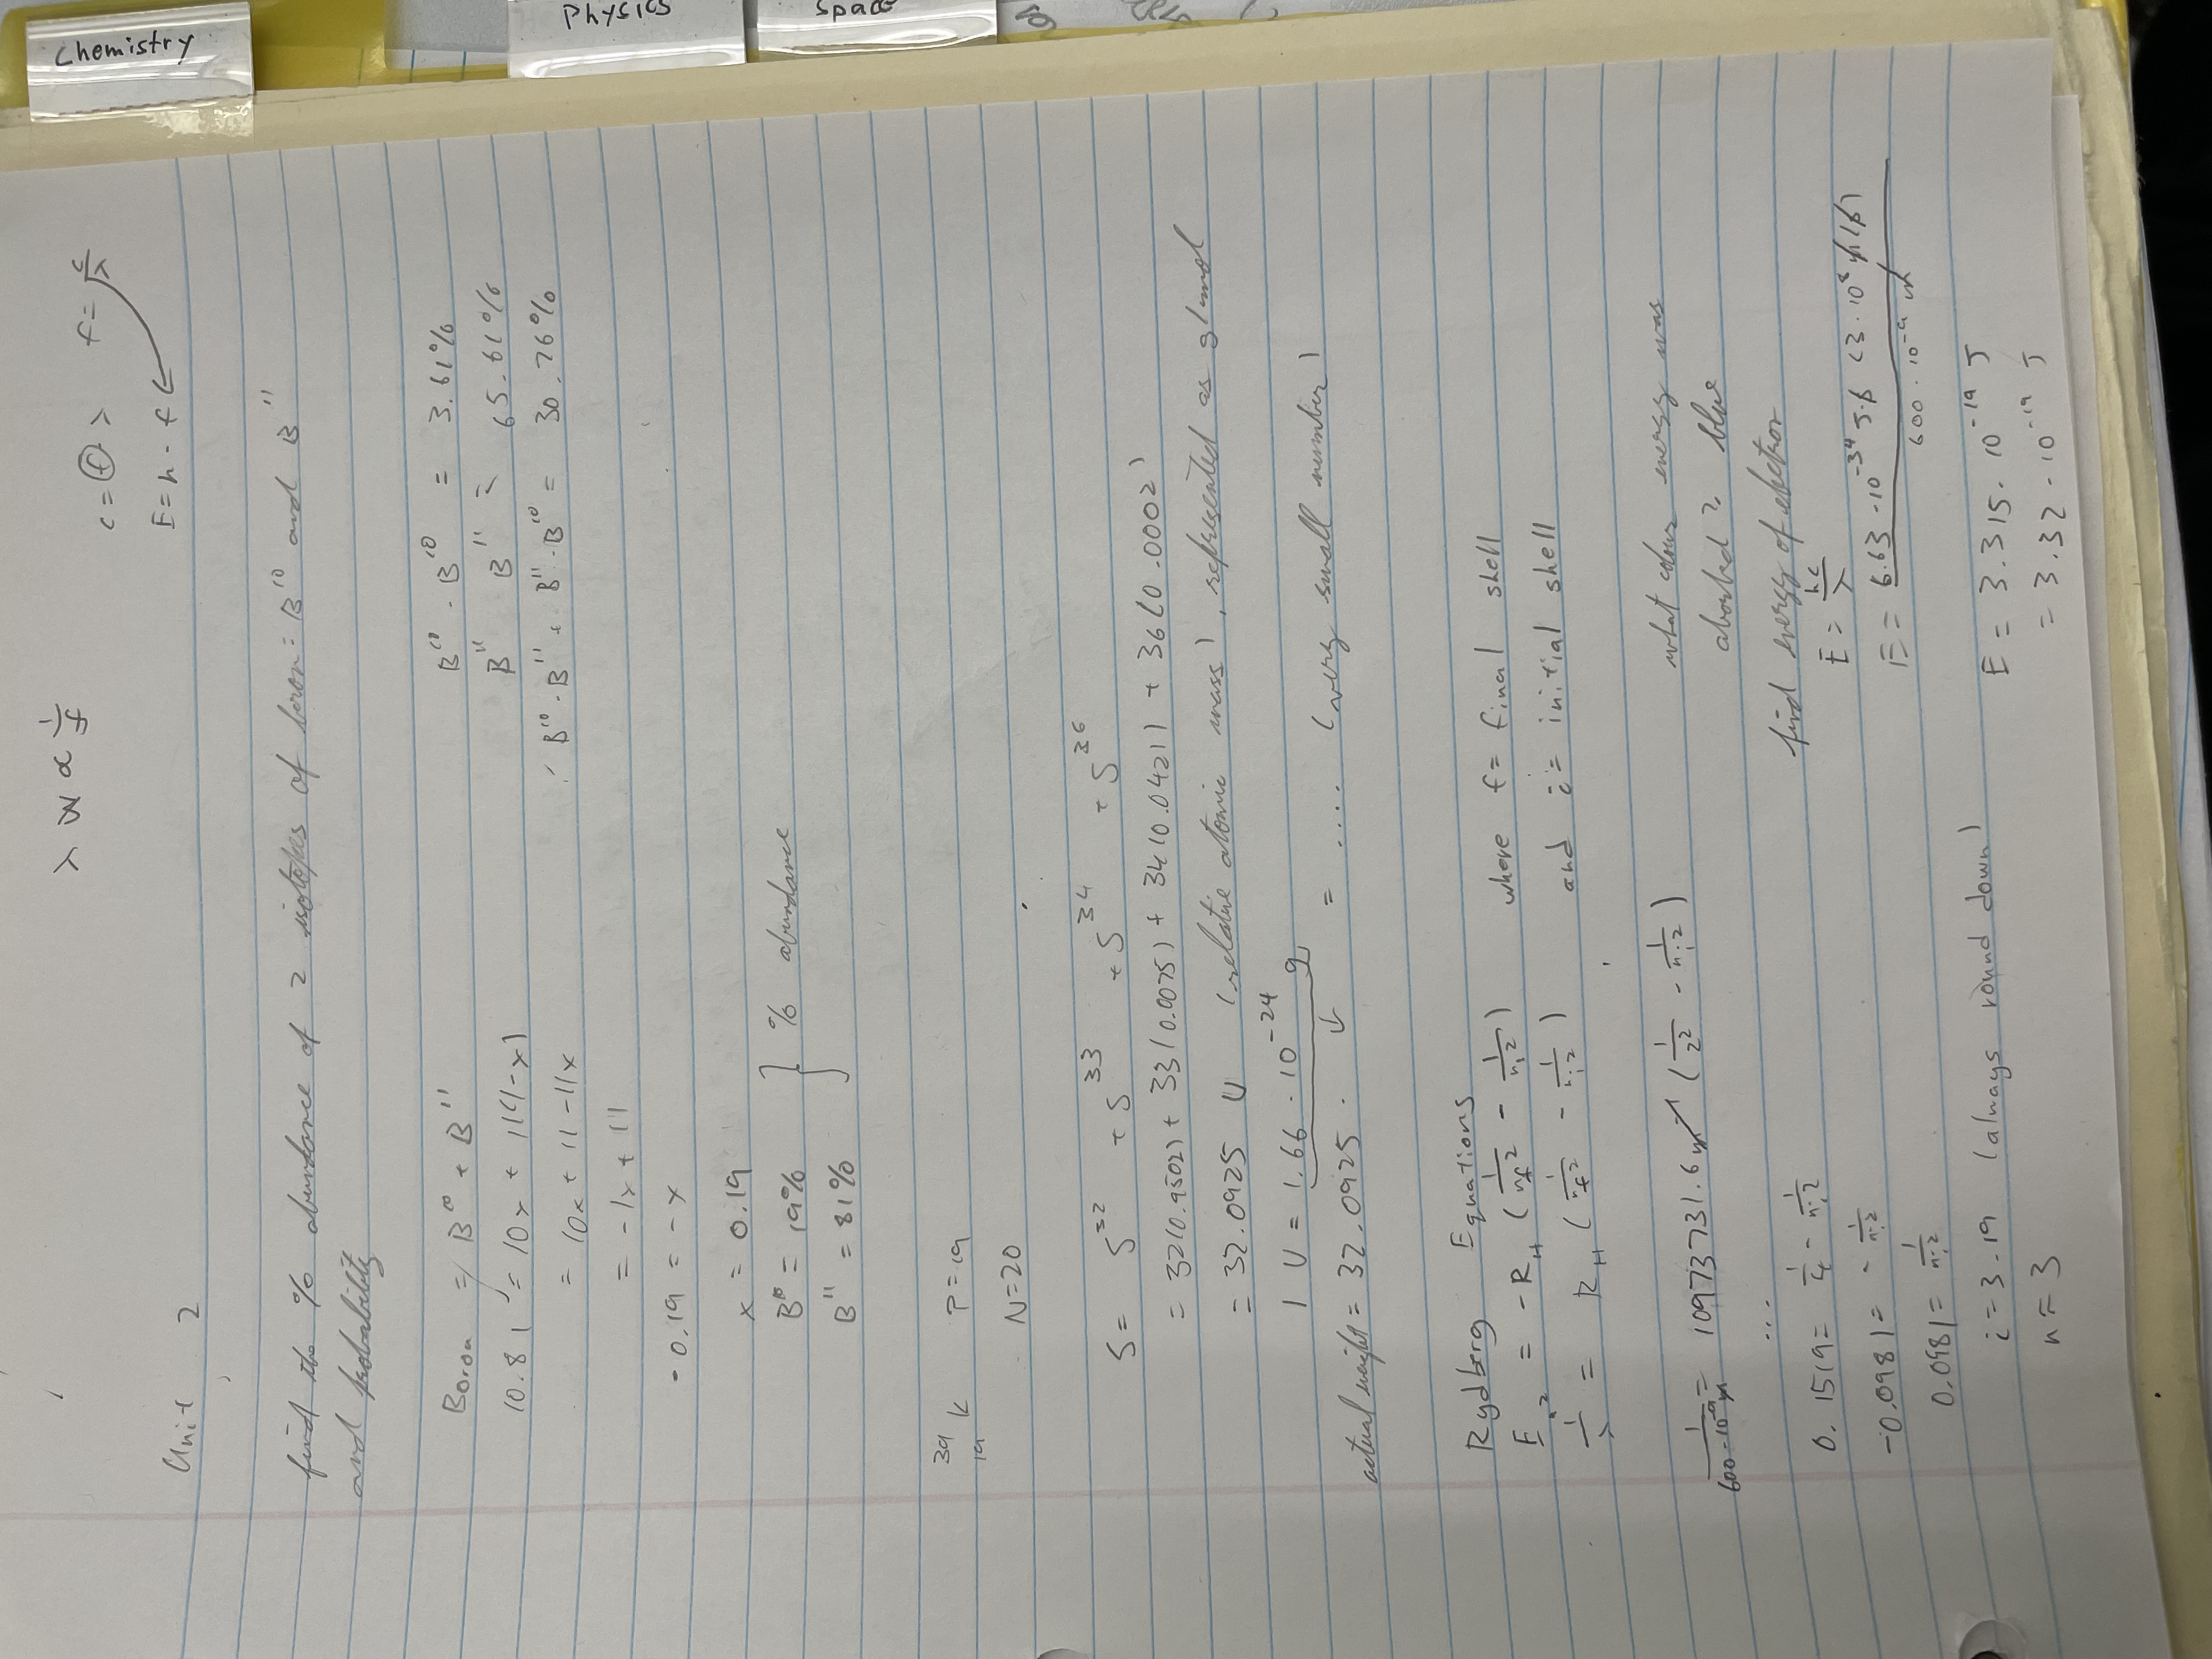 λ W ∝ 1/f
c = f · λ f = c/λ
E = h · f
Unit 2
find the % abundance of 2 isotopes of boron: B¹⁰ and B¹¹
and probability
Boron = B¹⁰ + B¹¹
10.81 = 10x + 11(1-x)
= 10x + 11 - 11x
= -1x + 11
-0.19 = -x
x = 0.19
B¹⁰ = 19%
B¹¹ = 81%
} % abundance
B¹⁰ · B¹⁰ = 3.61%
B¹¹ B¹¹ = 65.61%
B¹⁰ · B¹¹ + B¹¹ · B¹⁰ = 30.76%
³⁹₁₉K P=19
N=20
S = S³² + S³³ + S³⁴ + S³⁶
= 32(0.9502) + 33(0.0075) + 34(0.0421) + 36(0.0002)
= 32.0925 U (relative atomic mass), represented as g/mol
1 U = 1.66 · 10⁻²⁴ g
actual weight = 32.0925 · ↓ = .... (very small number)
Rydberg Equations
E = -R_H (1/nf² - 1/ni²) where f = final shell
1/λ = R_H (1/nf² - 1/ni²) and i = initial shell
1/600·10⁻⁹m = 10973731.6 m⁻¹ (1/2² - 1/ni²)
...
0.1519 = 1/4 - 1/ni²
-0.0981 = - 1/ni²
0.0981 = 1/ni²
i = 3.19 (always round down)
n = 3
what colour energy was
aborbed? blue
find energy of electron
E = hc/λ
E = 6.63 · 10⁻³⁴ J·s (3 · 10⁸ m/s) / 600 · 10⁻⁹ m
E = 3.315 · 10⁻¹⁹ J
= 3.32 · 10⁻¹⁹ J
Chemistry
Physics
Space